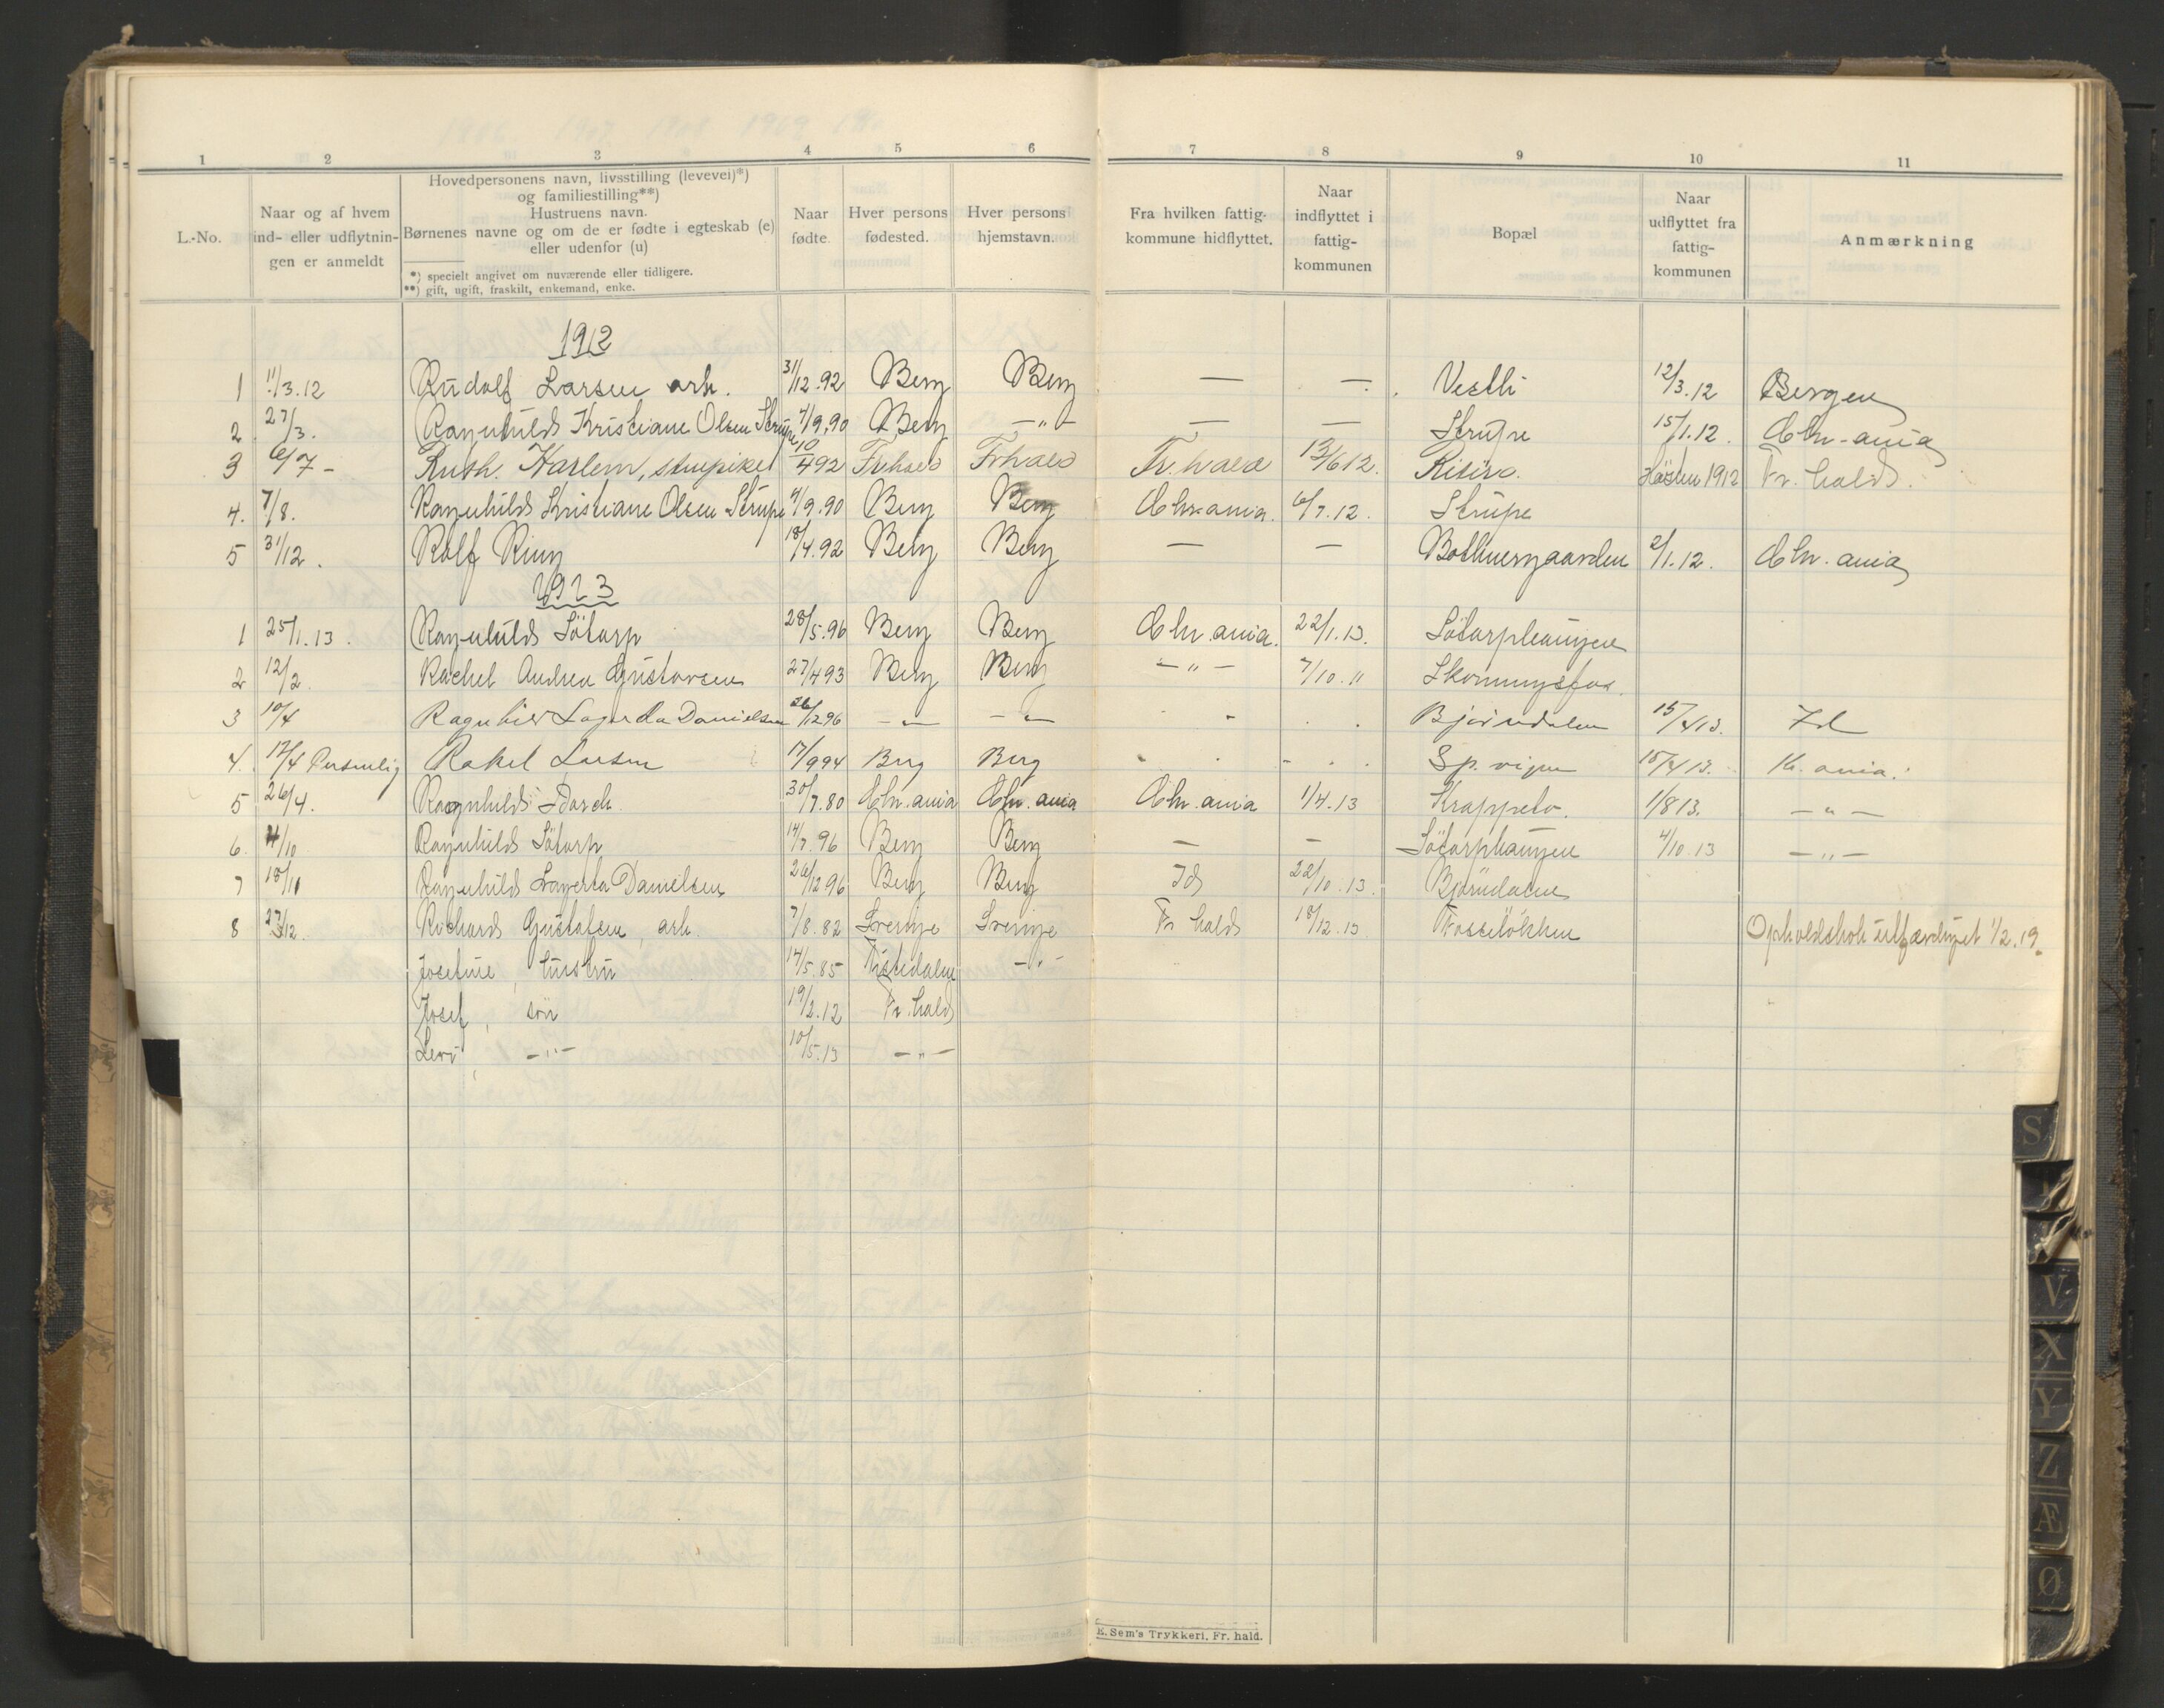 1 2 3 4 5 6 7 8 9 10 11
L.-No.
Naar og af hvem
ind- eller udflytnin-
gen er anmeldt
Hovedpersonens navn, livsstilling (levevei)*)
og familiestilling**)
Hustruens navn.
Børnenes navne og om de er fødte i egteskab (e)
eller udenfor (u)
*) specielt angivet om nuværende eller tidligere.
**) gift, ugift, fraskilt, enkemand, enke.
Naar
fødte.
Hver persons
fødested.
Hver persons
hjemstavn.
Fra hvilken fattig-
kommune hidflyttet.
Naar
indflyttet i
fattig-
kommunen
Bopæl
Naar
udflyttet fra
fattig-
kommunen
Anmærkning
1912
1 11/3.12 Rudolf Larsen arb. 31/12.92 Berg Berg — — Vestli 12/3.12 Bergen
2 27/3. Ragnhild Kristiane Olsen Strupe 4/9.90 Berg —"— — — Strupe 15/1.12. Chr-ania
3 6/7 - Ruth Karlem, 10/4 92 Frhald Frhald Fr.hald 13/6 12. Risira. Høsten 1912 Fr. hald.
4. 7/8. Ragnhild Kristiane Olsen Strupe 4/9.90 Berg Berg Chr.ania. 6/7.12. Strupe
5 31/12. Rolf Ring 18/4.92 Berg Berg — — Bothnergaarden 2/1.12. Chr.ania
1913
1 25/1.13. Ragnhild Sötorp 28/5.96 Berg Berg Chr.ania. 22/1.13. Sötorphaugen
2 12/2. Rachel Andrea Gustavsen 27/4 93 Berg Berg —"— 7/10.11 Skonningsfos.
3 10/4 Ragnhild Lagerta Danielsen 26/12 96 —"— —"— Björndalen 15/4 13. Id
4. 17/4 Personlig Rakel Larsen 17/9 94 Berg Berg Sp.vigen 15/4 13. Kr.ania.
5 26/4. Ragnhild 30/7.80 Chr.ania Chr.ania Chr.ania 1/4.13 Krappeto. 1/8 13. —"—
6. 4/10 Ragnhild Sötorp 14/7.96 Berg Berg — — Sötorphaugen 4/10.13 —"—
7 18/11 Ragnhild Lagerta Danielsen 26/12 96 Berg Berg Id 22/10.13. Björndalen
8 23/12. Richard Gustafsen, arb. 7/8.82 Sverige Sverige Fr hald 18/12.13 Fosselökken Opholdsbok utfærdiget 1/2.19.
Josefine, hustru 14/5.85 Tistedalen —"—
Josef, sön 19/2.12 Fr.hald
Levi, —"— 10/5.13 —"—
E. Sem's Trykkeri, Fr. hald.
S
V
X
Y
Z
Æ
Ø